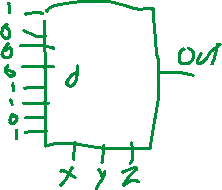 1
0
0
0
1
1
0
1
d
OUT
X Y Z